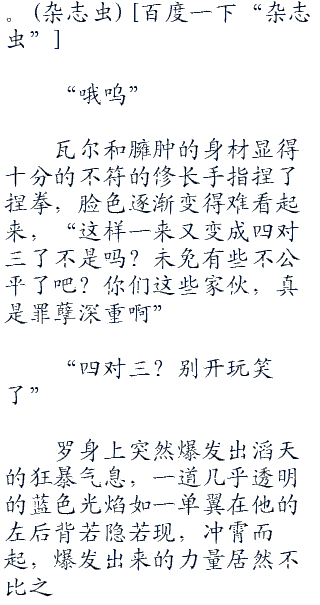 。(杂志虫)[百度一下“杂志
虫”]
“哦呜”
瓦尔和臃肿的身材显得
十分的不符的修长手指捏了
捏拳，脸色逐渐变得难看起
来，“这样一来又变成四对
三了不是吗？未免有些不公
平了吧？你们这些家伙，真
是罪孽深重啊”
“四对三？别开玩笑
了”
罗身上突然爆发出滔天
的狂暴气息，一道几乎透明
的蓝色光焰如一单翼在他的
左后背若隐若现，冲霄而
起，爆发出来的力量居然不
比之